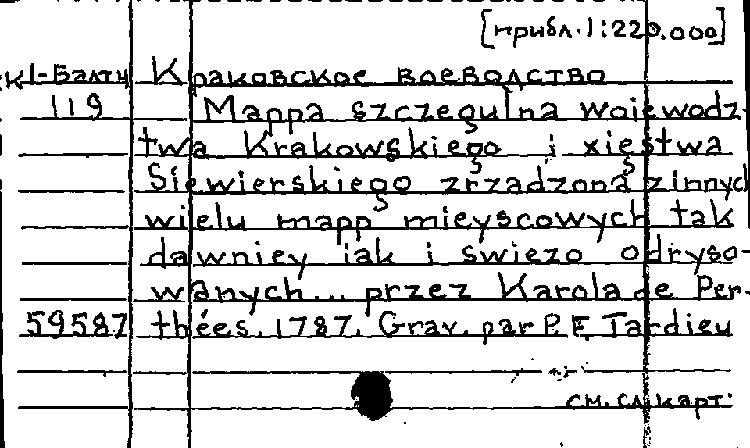 [прибл. 1:220.000]
К1-Балтч Краковское воеводство
119 Mappa szczegulna wojewodz-
twa Krakowskiego i xięstwa
Siewierskiego zrządzona z innych
wielu mapp mieyscowych tak
dawniey iak i swiezo odryso-
wanych... przez Karola de Per-
59587 thées. 1787. Grav. par P. F. Tardieu
см. сл. карт.